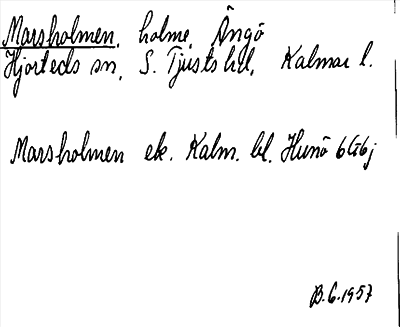 Marsholmen, holme, Ängö
Hjorteds sn, S. Tjusts hd, Kalmar l.
Marsholmen ek. Kalm. bl. Hunö 6G6j
B.G.1957